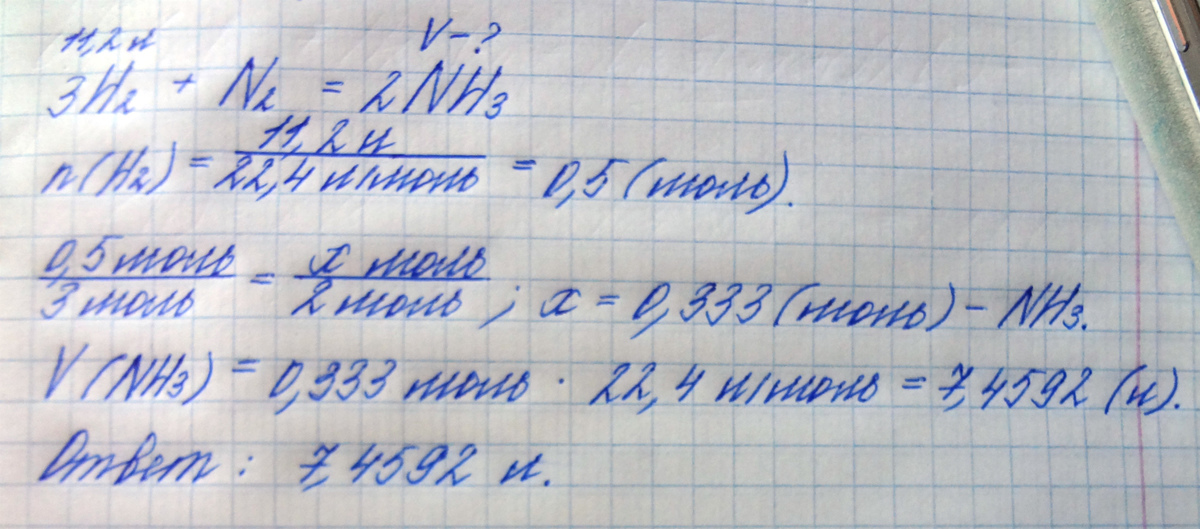 11,2 л V - ?
3H₂ + N₂ = 2NH₃
n(H₂) = 11,2 л / 22,4 л/моль = 0,5 (моль).
0,5 моль / 3 моль = x моль / 2 моль ; x = 0,333 (моль) - NH₃.
V (NH₃) = 0,333 моль · 22,4 л/моль = 7,4592 (л).
Ответ : 7,4592 л.